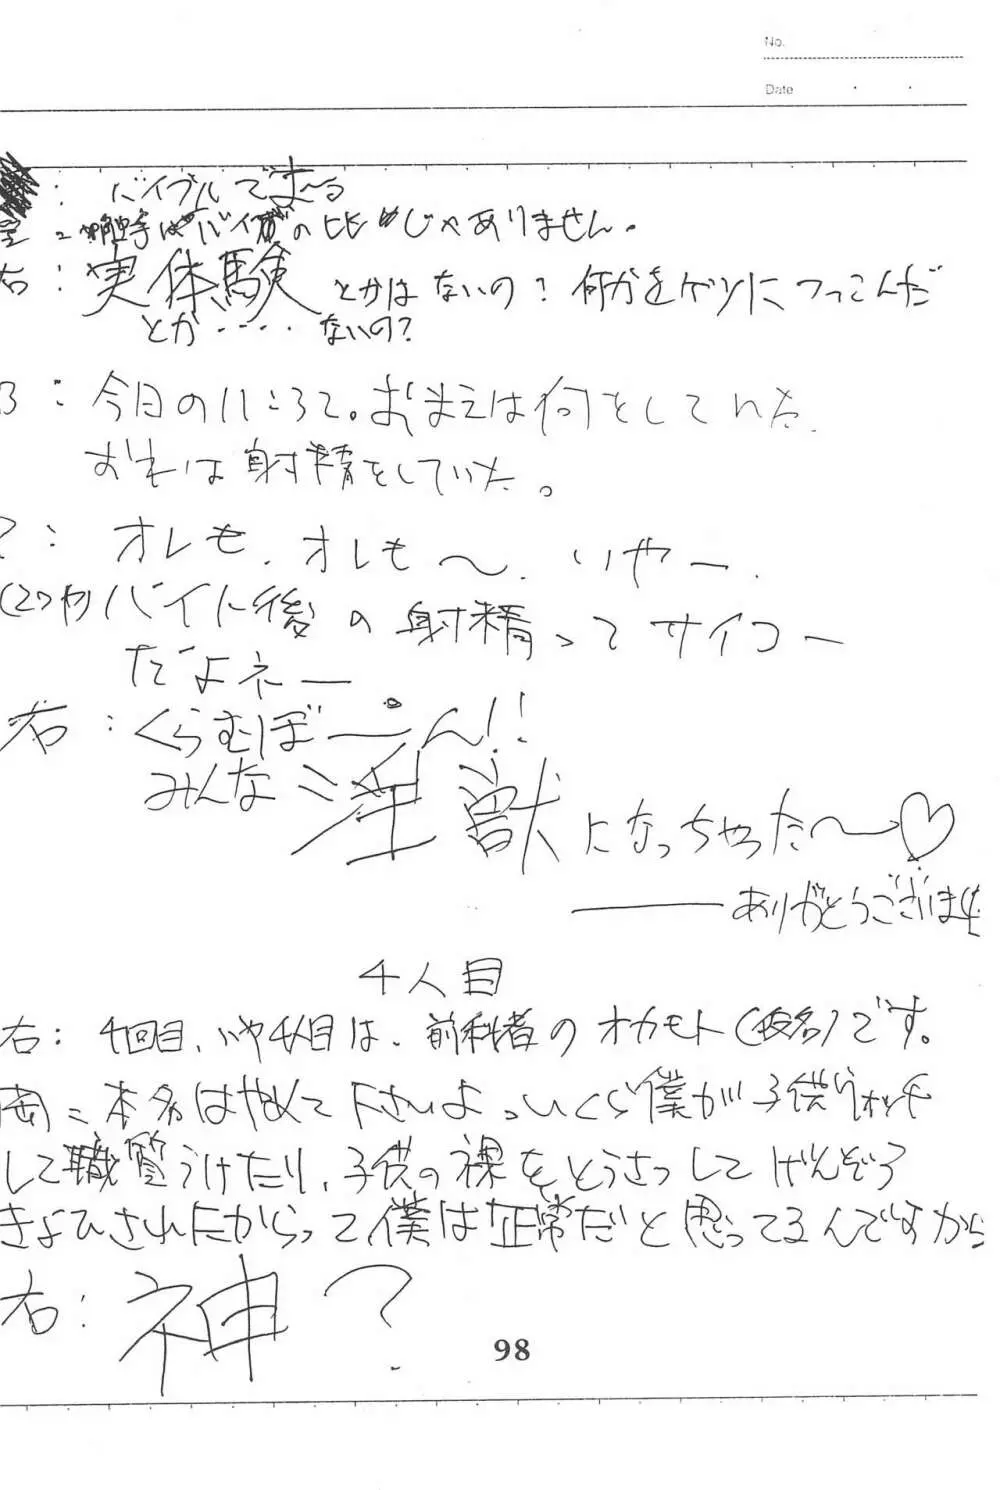 No.
Date
: バイブルでま〜る
触手はバイブルの比めじゃありません。
右: 実体験とかはないの? 何かをケツにつっこんだ
とか・・・・ないの?
: 今日の11ころて。おまえは何をしていた
おれは射精をしていた。
?: オレも、オレも〜、いやー、
バイト後の射精ってサイコー
だよネー
右: くらむぼーん!!
みんな淫獣になっちゃった〜♡
――ありがとうございま
4人目
右: 4回目、いや4人目は、前科者のオカモト(仮名)です。
岡: 本名はやめて下さいよっいくら僕が子供ウォッチ
して職質うけたり、子供の裸をとうさつしてげんぞう
きょひされたからって僕は正常だと思ってるんですから
右: 神?
98